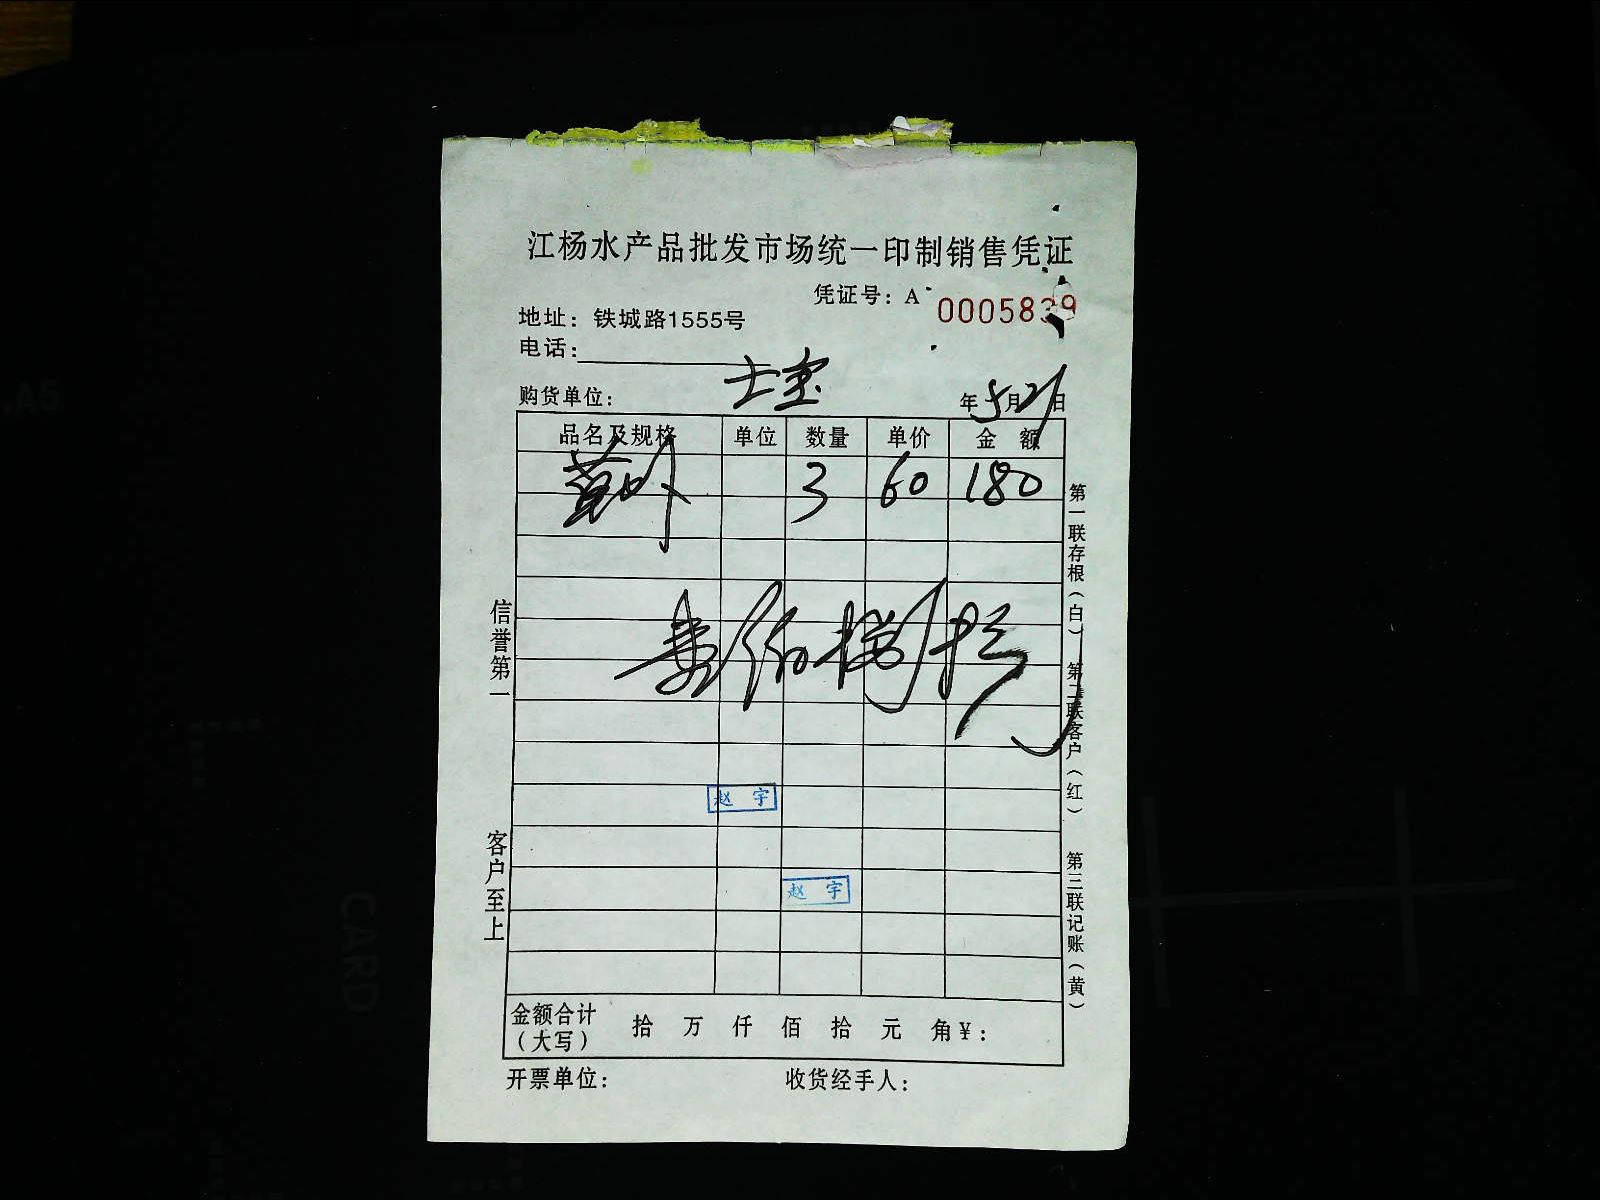 江杨水产品批发市场统一印制销售凭证
凭证号：A 0005839
地址：铁城路1555号
电话：
购货单位：士宝
年5月21日
品名及规格 单位 数量 单价 金额
3 60 180
赵 宇
赵 宇
金额合计（大写） 拾 万 仟 佰 拾 元 角¥：
开票单位： 收货经手人：
信誉第一
客户至上
第一联存根（白） 第二联客户（红） 第三联记账（黄）
CARD
A5